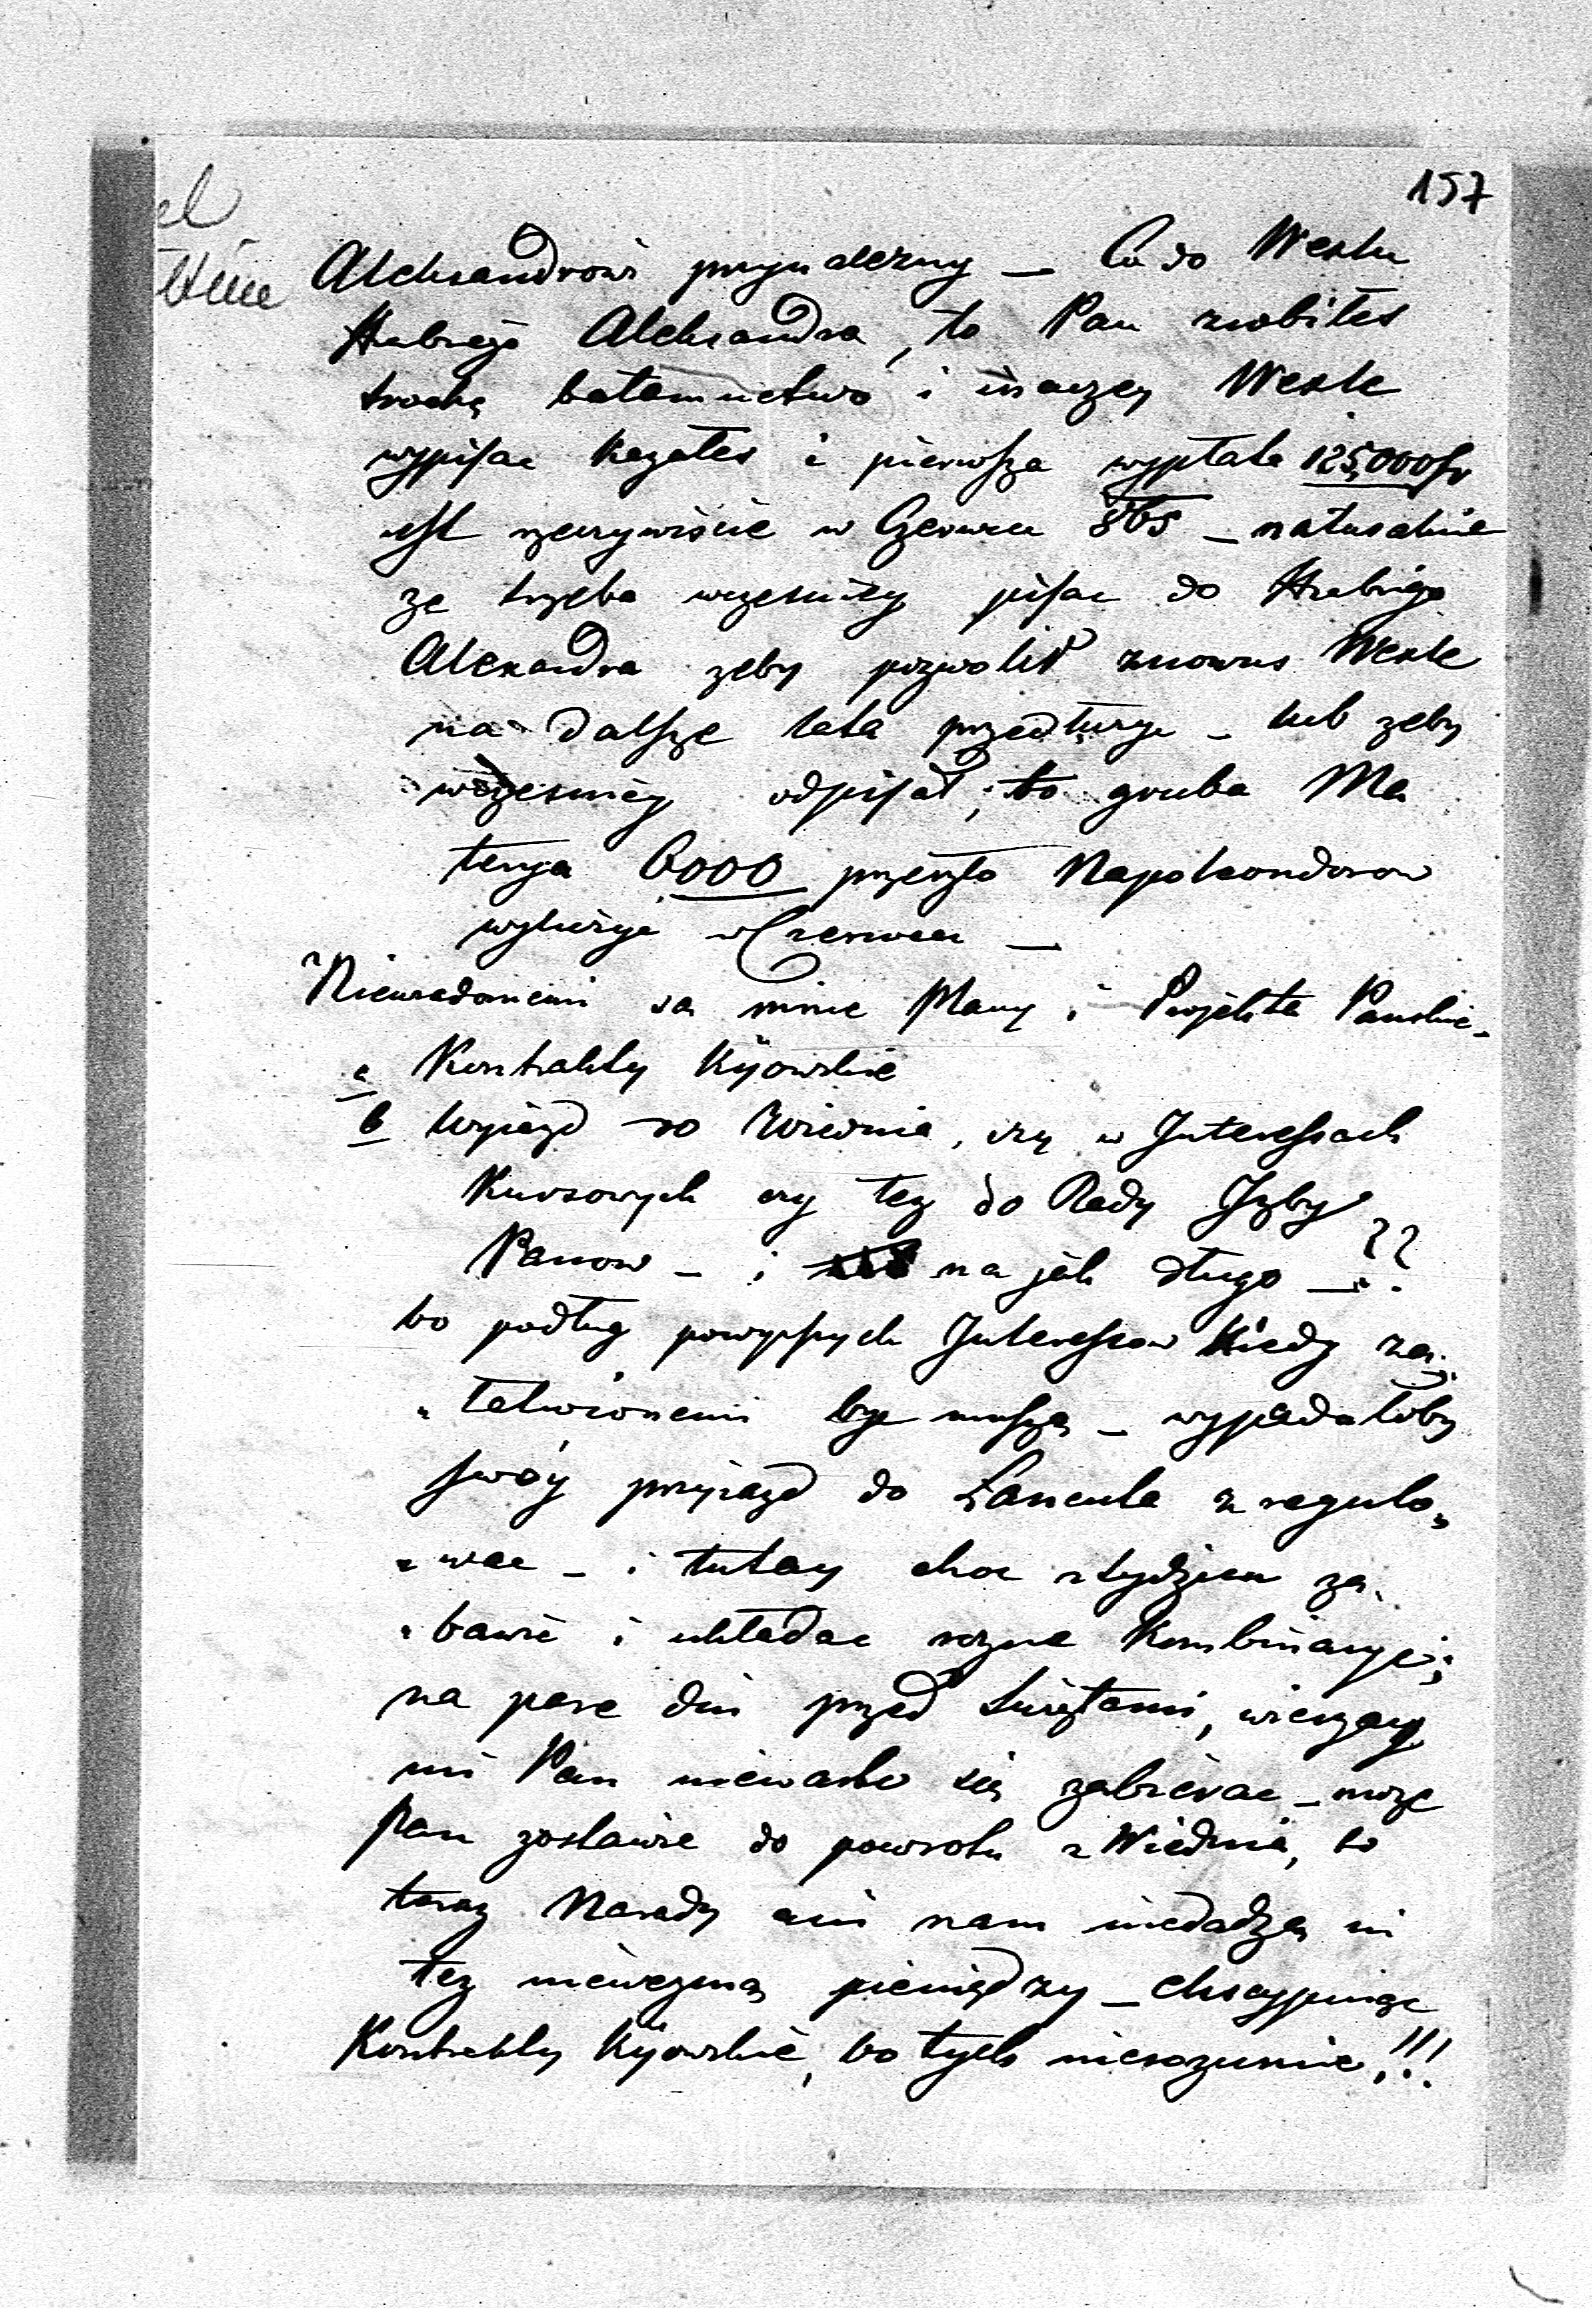 157
el
Aleksandrowi przynalezny — Co do Wexlu
Hrabiego Aleksandra, to Pan zrobiłes
trochę bałamuctwo i inaczey Wexle
wypisac kazałes i pierwsza wypłata 125,000 fr
jest rzeczywiscie w Czerwcu 865 — naturalnie
ze trzeba wczesniey pisac do Hrabiego
Alexandra zeby pozwolił znowus Wexle
na dalsze lata przedłuzyc — lub zeby
wczesniey odpisał; to gruba Ma
terya 6000 przeszło Napoleondorow
wyliczyc w Czerwcu —
Niewiadomemi sa mnie Plany i Projekta Panskie —
a Kontrakty Kijowskie
b Wyjazd do Wiednia, czy w Interessach
Kursowych czy tez do Rady Izby
Panow — i na jak długo — ??
bo podług powyzszych Interessow Kiedy za„
„łatwionemi byc muszą — wypadałoby
swóy przyjazd do Łancuta z regulo„
„wac — i tutay choc z tydzien za„
„bawic i układac rozne Kombinacye;
na pare dni przed Swiętami, wierzay
mi Pan niewarto się zabierac — moze
Pan zostawic do powrotu z Wiednia, bo
teraz Narady ani nam niedadzą ni
tez niewezmą pieniędzy — chcypiwszy
Kontrakty Kijowskie, bo tych nierozumie!!!